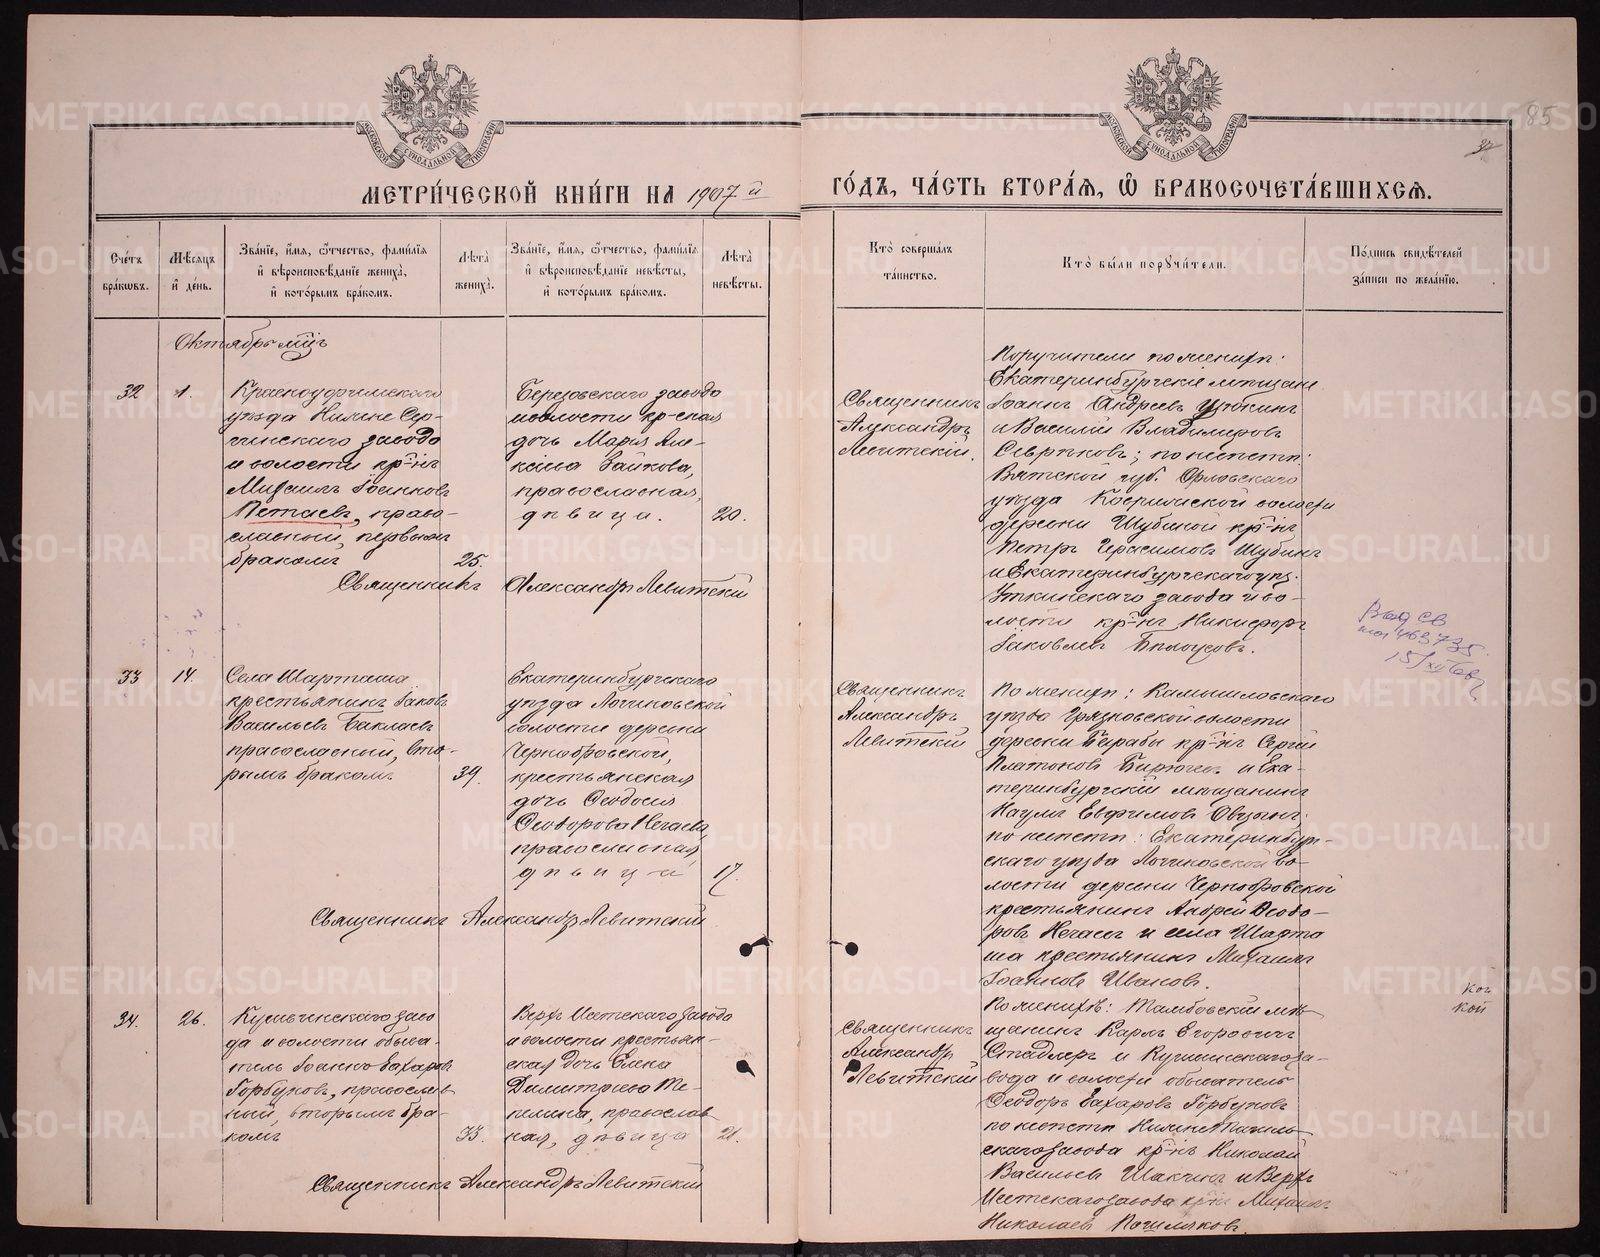 МЕТРИ́ЧЕСКОЙ КНИ́ГИ НА 1907й
ГО́ДЪ, ЧА́СТЬ ВТОРА́Я, Ѡ БРАКОСОЧЕТА́ВШИХСЯ.
85
Сче́тъ бра́ковъ.
Мѣ́сяцъ и де́нь.
Зва́нїе, и́мя, ѻ҆́тчество, фами́лїя и҆ вѣроисповѣ́данїе жениха̀, и҆ кото́рымъ бра́комъ.
Лѣ́та жениха̀.
Зва́нїе, и́мя, ѻ҆́тчество, фами́лїя и҆ вѣроисповѣ́данїе невѣ́сты, и҆ кото́рымъ бра́комъ.
Лѣ́та невѣ́сты.
Кто̀ соверша́лъ та́инство.
Кто̀ бы́ли порꙋчи́тели.
По́дпись свидѣ́телей за́писи по жела́нїю.
Октябрь мцъ
32
1.
Красноуфимскаго
уѣзда Нижне Сер-
гинскаго завода
и волости кр-нъ
Михаилъ Іоанновъ
Петаевъ, право-
славный, первымъ
бракомъ
25.
Березовскаго завода
и волости кр-ская
дочь Марія Але-
ксіева Зайкова,
православная,
дѣвица.
20.
Священникъ Александръ Левитскій
Священникъ
Александръ
Левитскій.
Поручители по женихѣ:
Екатеринбургскіе мѣщане
Іоаннъ Андреевъ
и Василій Владимировъ
по невѣстѣ:
Вятской губ. Орловскаго
уѣзда волости
деревни Шубиной кр-нъ
Петръ Герасимовъ Шубинъ
и Екатеринбургскаго уѣз.
Уткинскаго завода и во-
лости кр-нъ Никифоръ
Іаковлевъ Бѣлоусовъ.
33
14.
Села Шарташа
крестьянинъ Іаковъ
Васильевъ Баклаевъ
православный, вто-
рымъ бракомъ
39.
Екатеринбургскаго
уѣзда Логиновской
волости деревни
Чернобровской,
крестьянская
дочь Ѳеодосія
Ѳеодорова Нечаева
православная
дѣвица
17.
Священникъ Александръ Левитскій
Священникъ
Александръ
Левитскій
По женихѣ: Камышловскаго
уѣзда Грязновской волости
деревни кр-нъ Сергій
Платоновъ и Ека-
теринбургскій мѣщанинъ
Наумъ Евфимовъ
по невѣстѣ: Екатеринбург-
скаго уѣзда Логиновской во-
лости деревни Чернобровской
крестьянинъ Андрей Ѳеодо-
ровъ Нечаевъ и села Шарта
ша крестьянинъ Михаилъ
Іоанновъ Ивановъ.
34.
26.
Кушвинскаго заво
да и волости обыва-
тель Іоаннъ Захаровъ
Горбуновъ, православ
ный, вторымъ бра-
комъ
33.
Верхъ Исетскаго завода
и волости крестьян-
ская дочь Елена
Димитріева Те-
плина, православ
ная, дѣвица
21.
Священникъ Александръ Левитскій
Священникъ
Александръ
Левитскій
По женихѣ: Тамбовскій мѣ-
щанинъ Карлъ Егоровичъ
Стадлеръ и Кушвинскаго за-
вода и волости обыватель
Ѳеодоръ Захаровъ Горбуновъ
по невѣстѣ Нижне Тагиль-
скаго завода кр-нъ Николай
Васильевъ и Верхъ
Исетскаго завода кр-нъ Михаилъ
Николаевъ